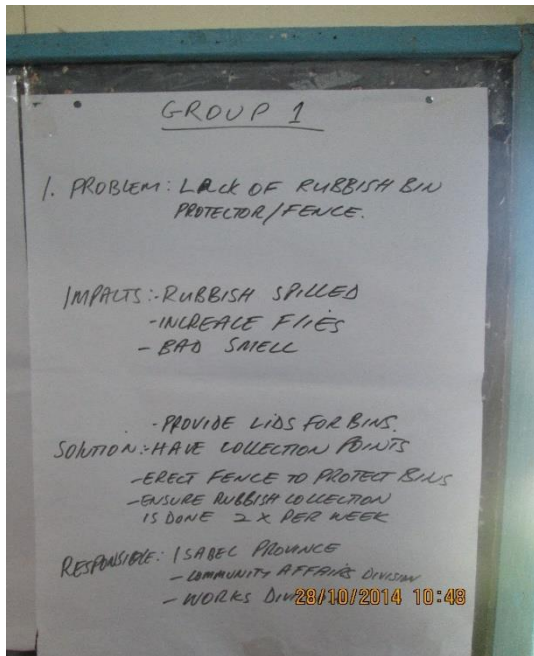 GROUP 1
1. PROBLEM: LACK OF RUBBISH BIN
PROTECTOR/FENCE.
IMPACTS:-RUBBISH SPILLED
-INCREASE FLIES
- BAD SMELL
- PROVIDE LIDS FOR BINS.
SOLUTION:-HAVE COLLECTION POINTS
-ERECT FENCE TO PROTECT BINS
-ENSURE RUBBISH COLLECTION
IS DONE 2 X PER WEEK
RESPONSIBLE: ISABEL PROVINCE
- COMMUNITY AFFAIRS DIVISION
- WORKS
28/10/2014 10:48